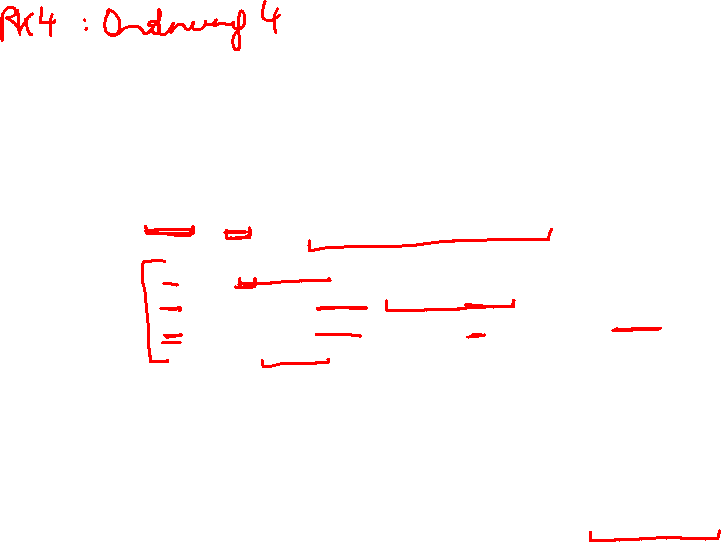 RK4 : Ordnung 4